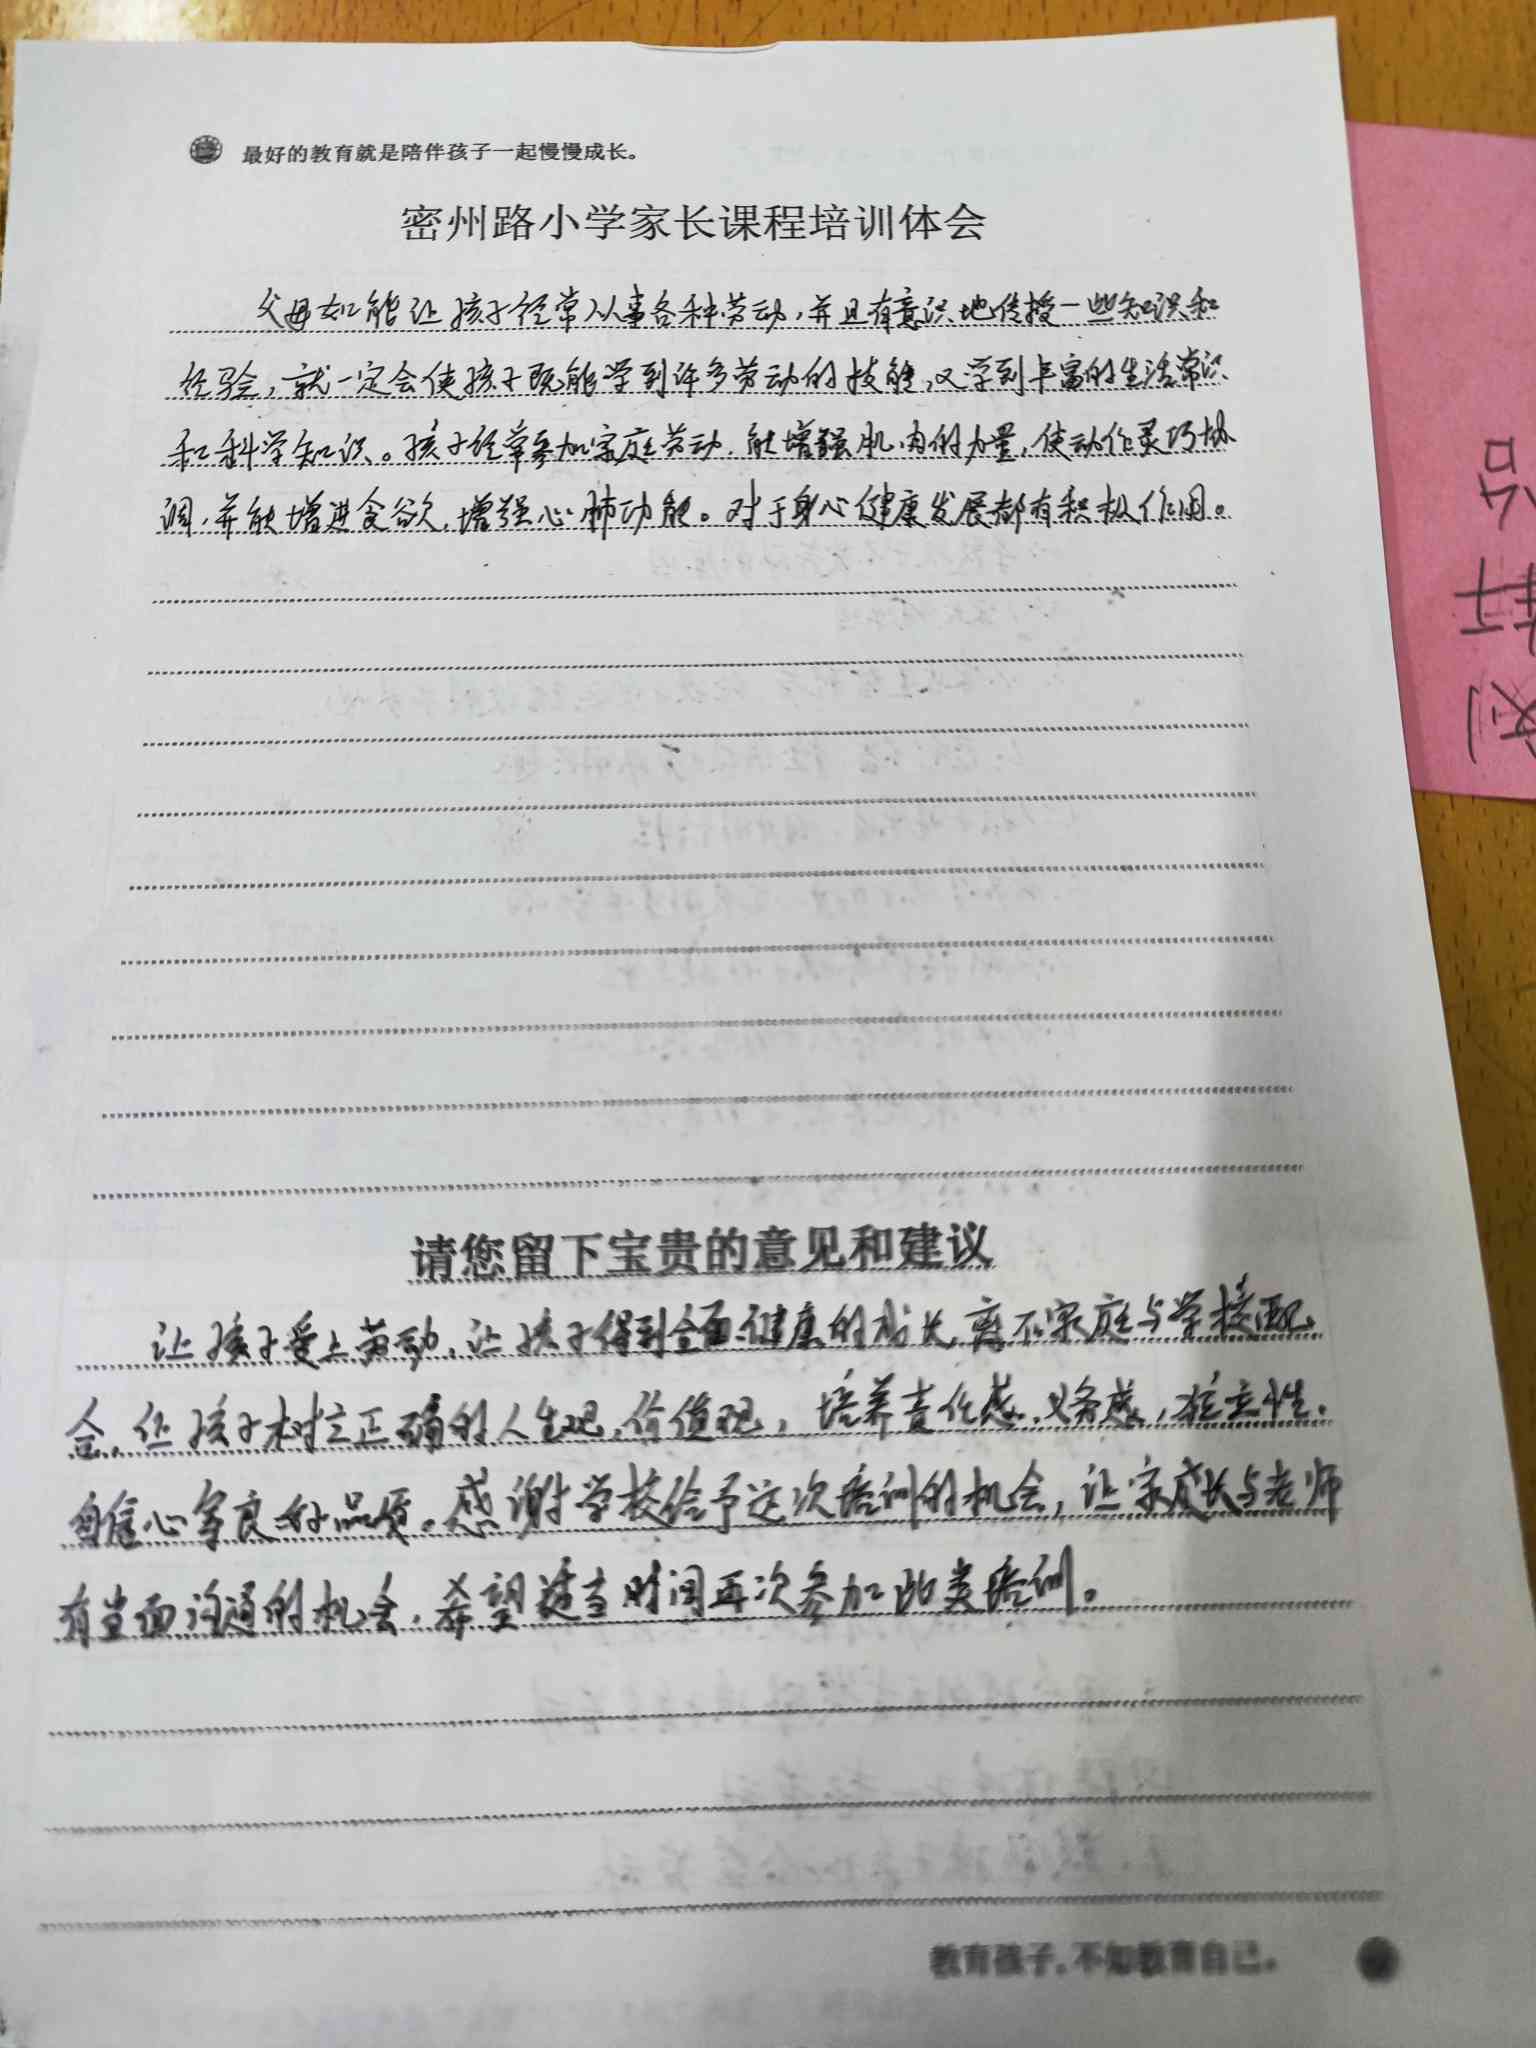 最好的教育就是陪伴孩子一起慢慢成长。
密州路小学家长课程培训体会
父母如能让孩子经常从事各种劳动，并且有意识地传授一些知识和
经验，就一定会使孩子既能学到许多劳动的技能，又学到丰富的生活常识
和科学知识。孩子经常参加家庭劳动，能增强肌肉的力量，使动作灵巧协
调，并能增进食欲，增强心肺功能。对于身心健康发展都有积极作用。
请您留下宝贵的意见和建议
让孩子爱上劳动，让孩子得到全面健康的成长，离不家庭与学校配
合，让孩子树立正确的人生观，价值观，培养责任感，义务感，独立性，
自信心等良好品质。感谢学校给予这次培训的机会，让家长与老师
有当面沟通的机会，希望适当时间再次参加此类培训。
教育孩子，不如教育自己。